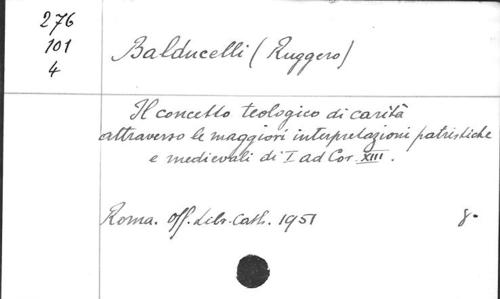 276
101
4
Balducelli (Ruggero)
Il concetto teologico di carità
attraverso le maggiori interpretazioni patristiche
e medievali di I ad Cor. XIII.
Roma. Off. Libr. Cath. 1951 8-